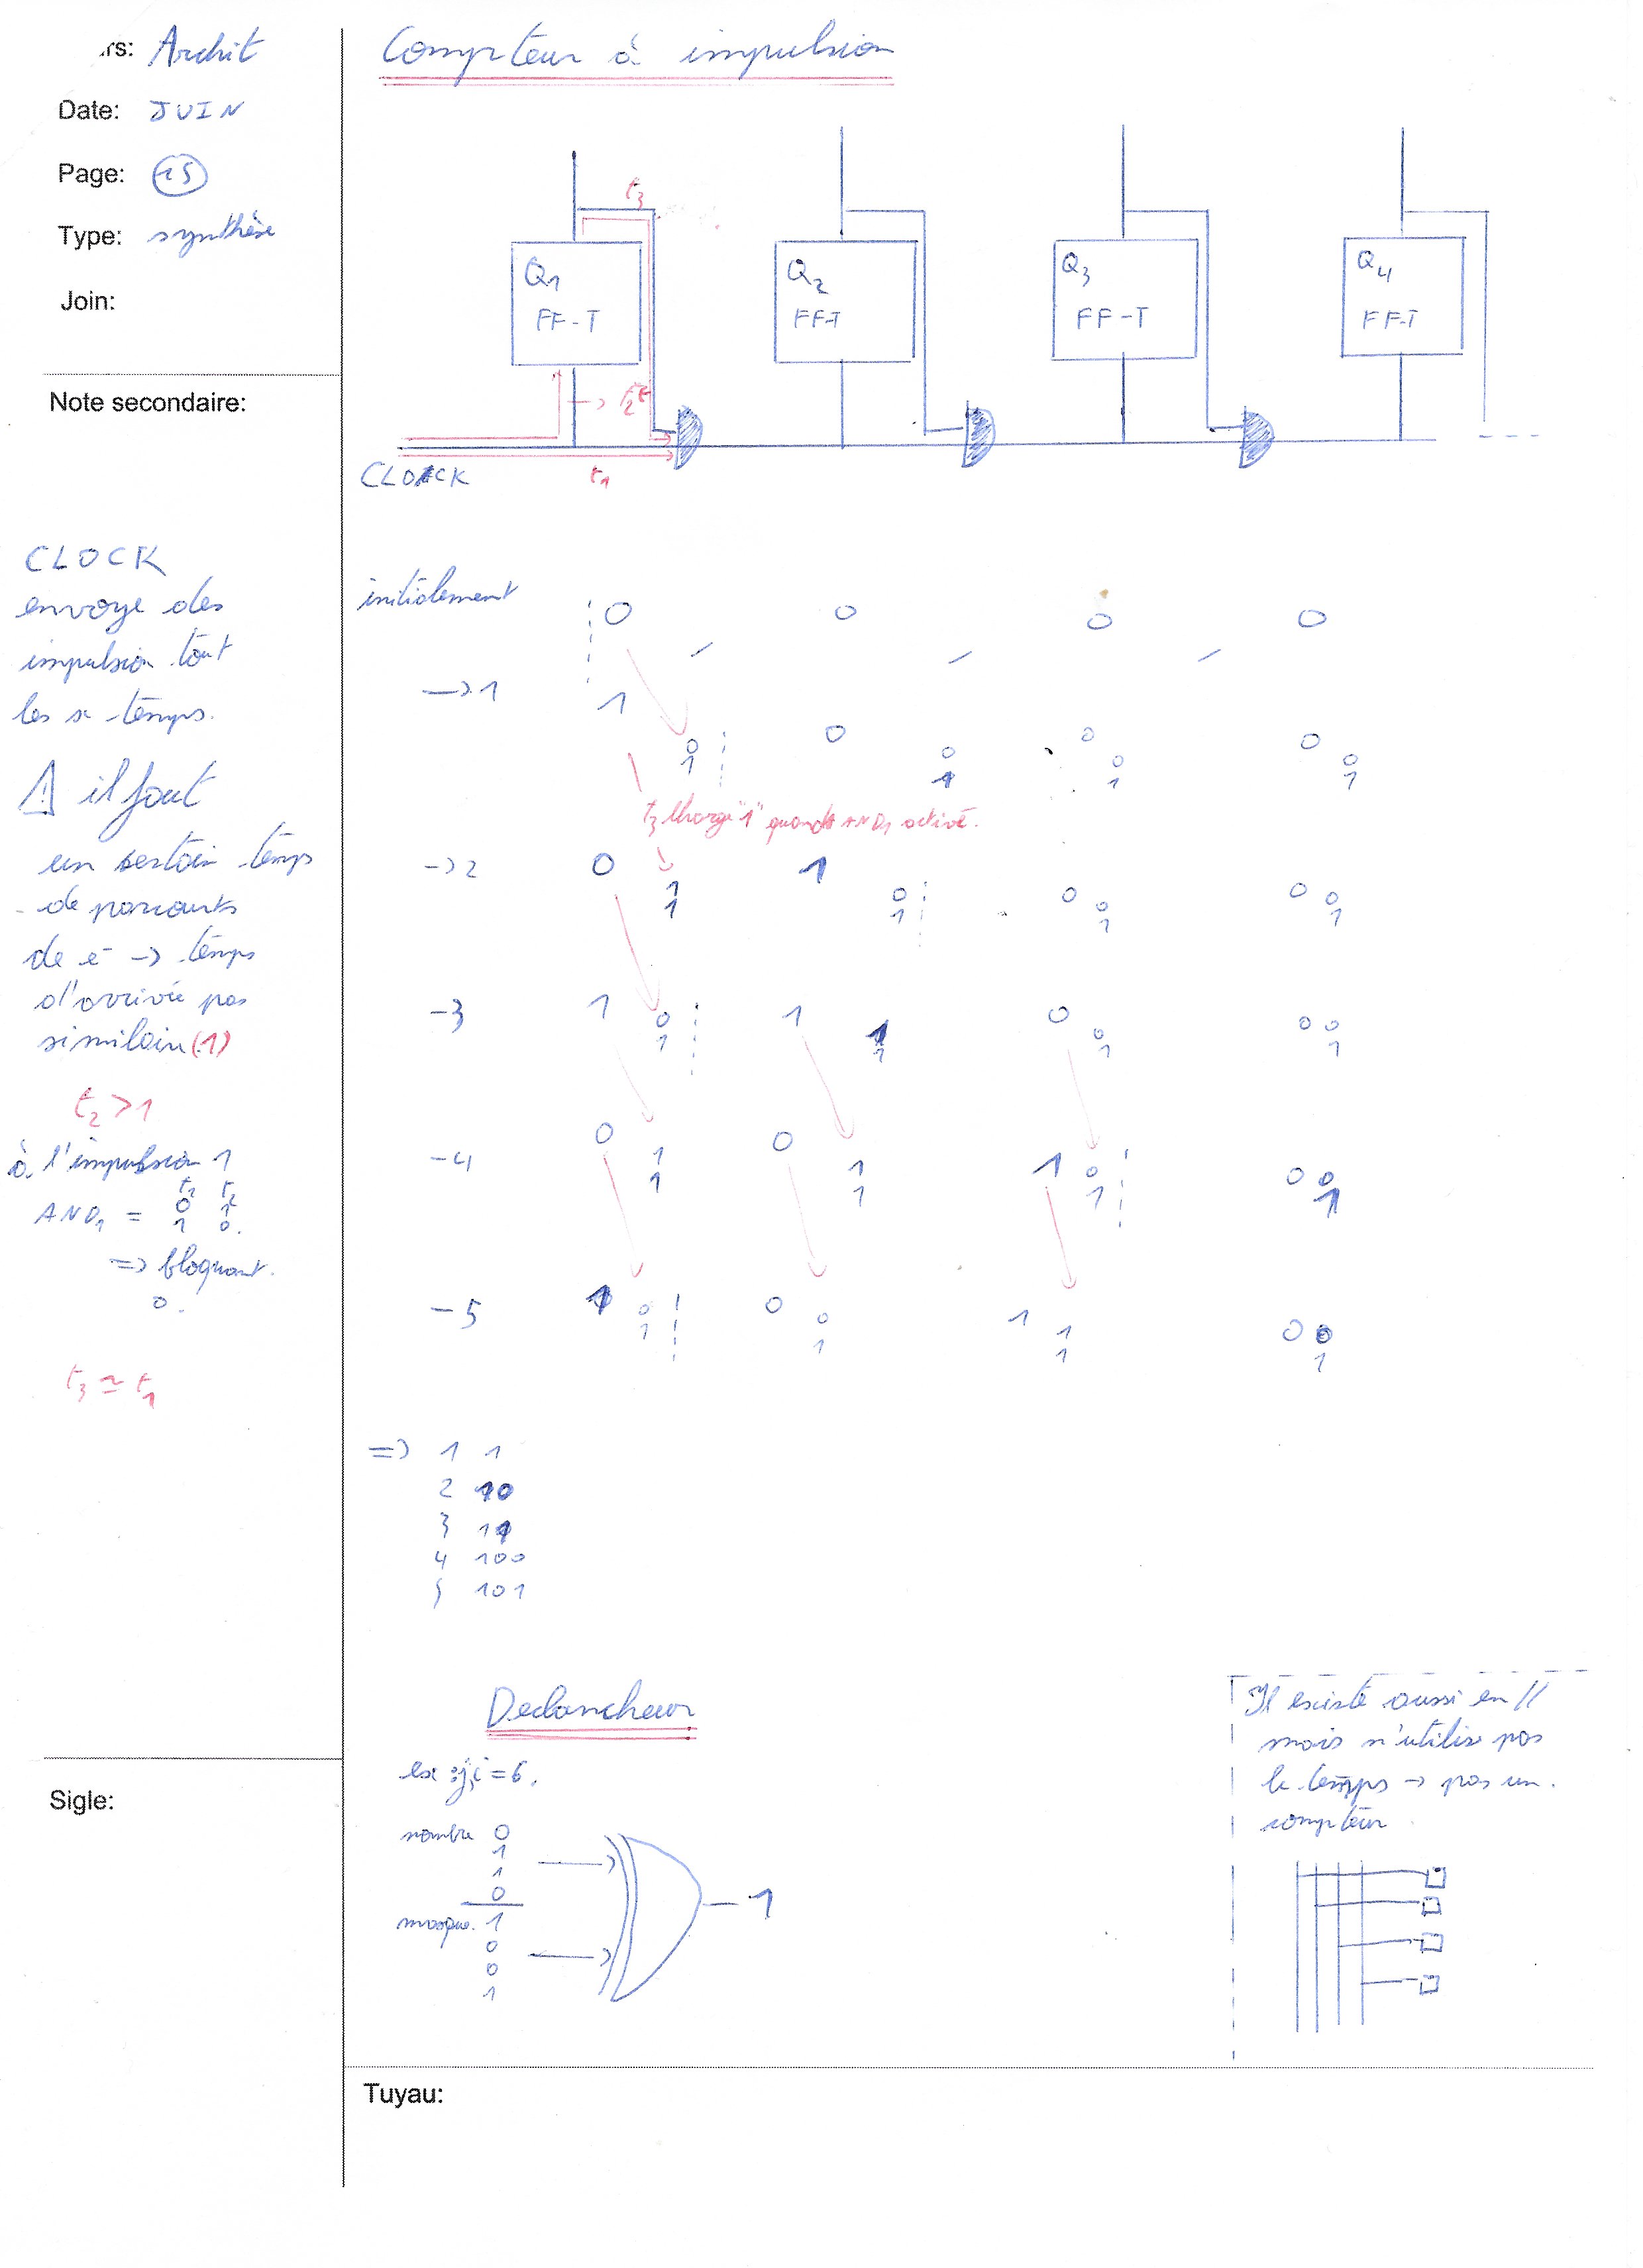 .rs: Archit
Date: JUIN
Page: 25
Type: synthèse
Join:
Note secondaire:
CLOCK
envoye des
impulsion tout
les x temps.
⚠ il faut
un certain temps
de parcours
de e⁻ -> temps
d'arrivée pas
similair (1)
t₂ > 1
à l'impulsion 1
AND₁ = 0 1
1 0.
=> bloquant.
0.
t₃ ≃ t₁
Sigle:
Compteur à impulsion
t₃
Q₁ Q₂ Q₃ Q₄
FF-T FF-T FF-T FF-T
-> t₂
CLOCK t₁
initialement 0 0 0 0
-> 1 1
0 0 0
0 0 0 0
1 1 1 1
t₃ chargé "1" quand AND₁ activé.
-> 2 0 1
1 0 0 0 0 0
1 1 1 1
- 3 1 1 0 0 0
0 1 0
1 1 1 1
- 4 0 0 1 0 0
1 1 0
1 1 1 1
- 5 1 0 1 0 0
0 0 1
1 1 1 1
=> 1 1
2 10
3 11
4 100
5 101
Declancheur
ex : j,i = 6.
nombre 0
1
1
0
masque. 1
0
0
1
- 1
Il existe aussi en //
mais n'utilise pas
le temps -> pas un.
compteur
Tuyau: